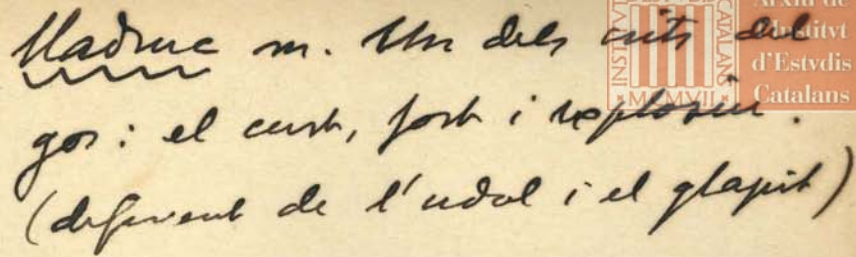 lladruc m. Un dels crits del
gos: el curt, fort i explosiu.
(diferent de l'udol i el glapit)
Arxiu de
l'Institvt
d'Estvdis
Catalans
MCMVII